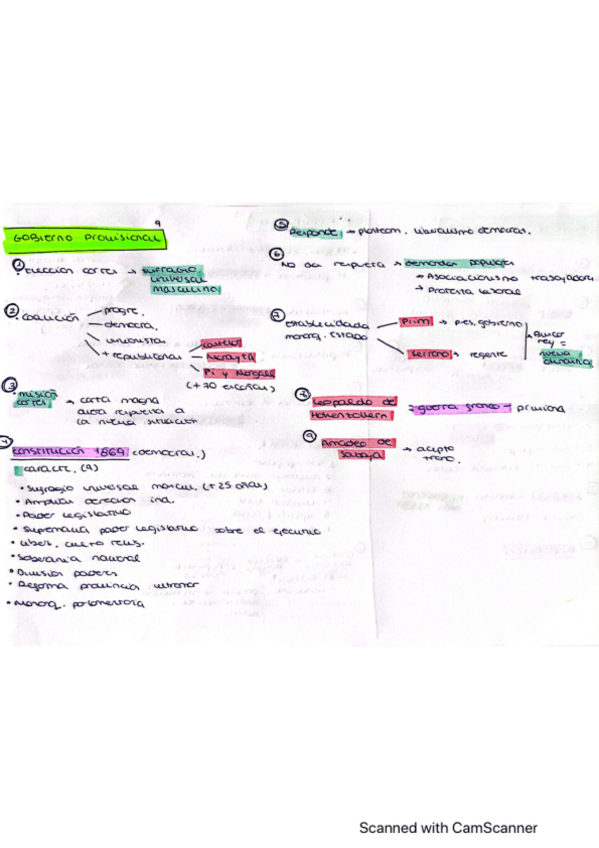 9
GOBIERNO PROVISIONAL
① Elección cortes → sufragio
universal
masculino
② Coalición
progre.
democra.
unionistas
+ republicanos
Castelar
Pi y Margall
(+ 70 escaños)
③ misión
cortes
→ carta magna
que respuesta a
la nueva situación
4 Constitución 1869 (democrat.)
caract. (9)
• Sufragio universal mascul. (+ 25 años)
• Amplitud derechos ind.
• Poder legislativo
• Supremacía poder legislativo sobre el ejecutivo
• Libert. culto relig.
• Soberanía nacional
• División poderes
• Reforma provincias ultramar
• Monarq. parlamentaria
⑤ Responde → liberalismo democrat.
⑥ No da respuesta → demandas populares
→ Asociacionismo trabajadores
→ Protesta laboral
⑦ establecidada
monarq. Estado
Prim → pres. gobierno
Serrano → regente
Buscar
rey =
nueva
dinastía
⑧ Leopoldo de
Hohenzollern
= guerra franco - prusiana
⑨ Amadeo de
Saboya
→ acepta
trono.
Scanned with CamScanner